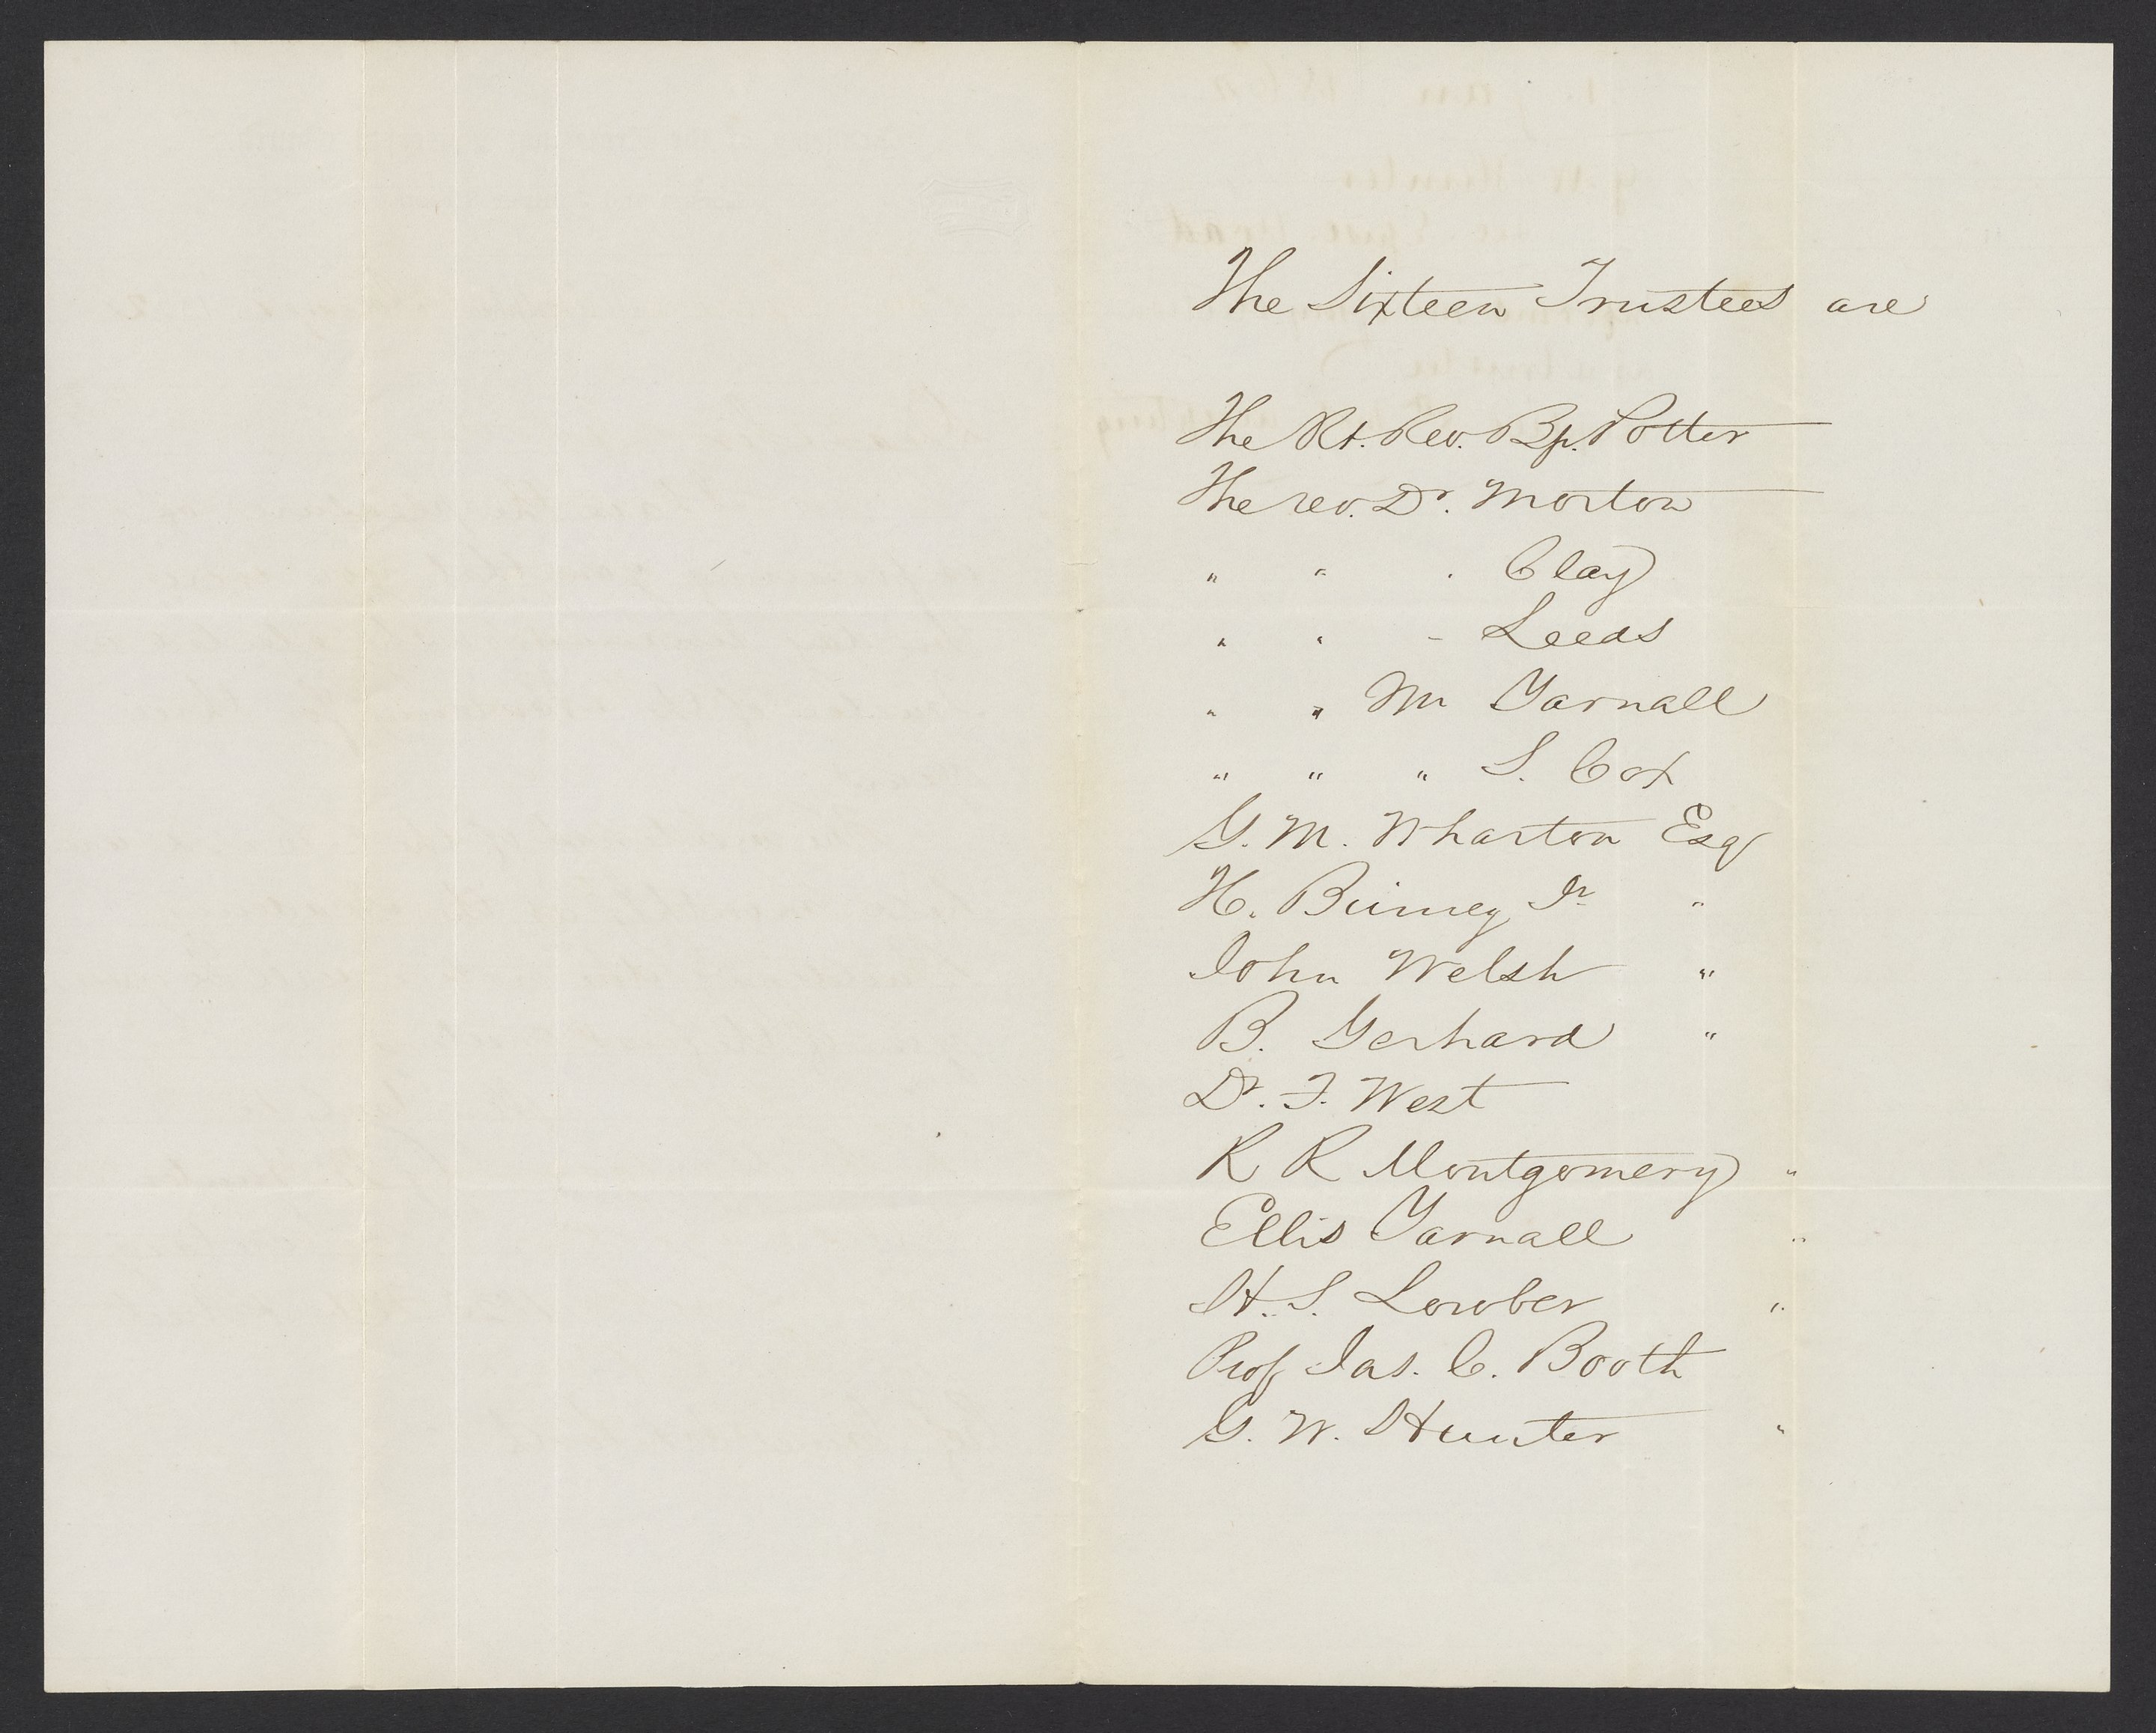 The Sixteen Trustees are
The Rt. Rev. Bp. Potter
The rev. Dr. Morton
" " . Clay
" " - Leeds
" " Mr Yarnall
" " " S. Cox
G. M. Wharton Esq
H. Binney Jr "
John Welsh "
B. Gerhard "
Dr. F. West
R R Montgomery "
Ellis Yarnall "
H. S. Lowber "
Prof Jas. C. Booth
G. W. Hunter "